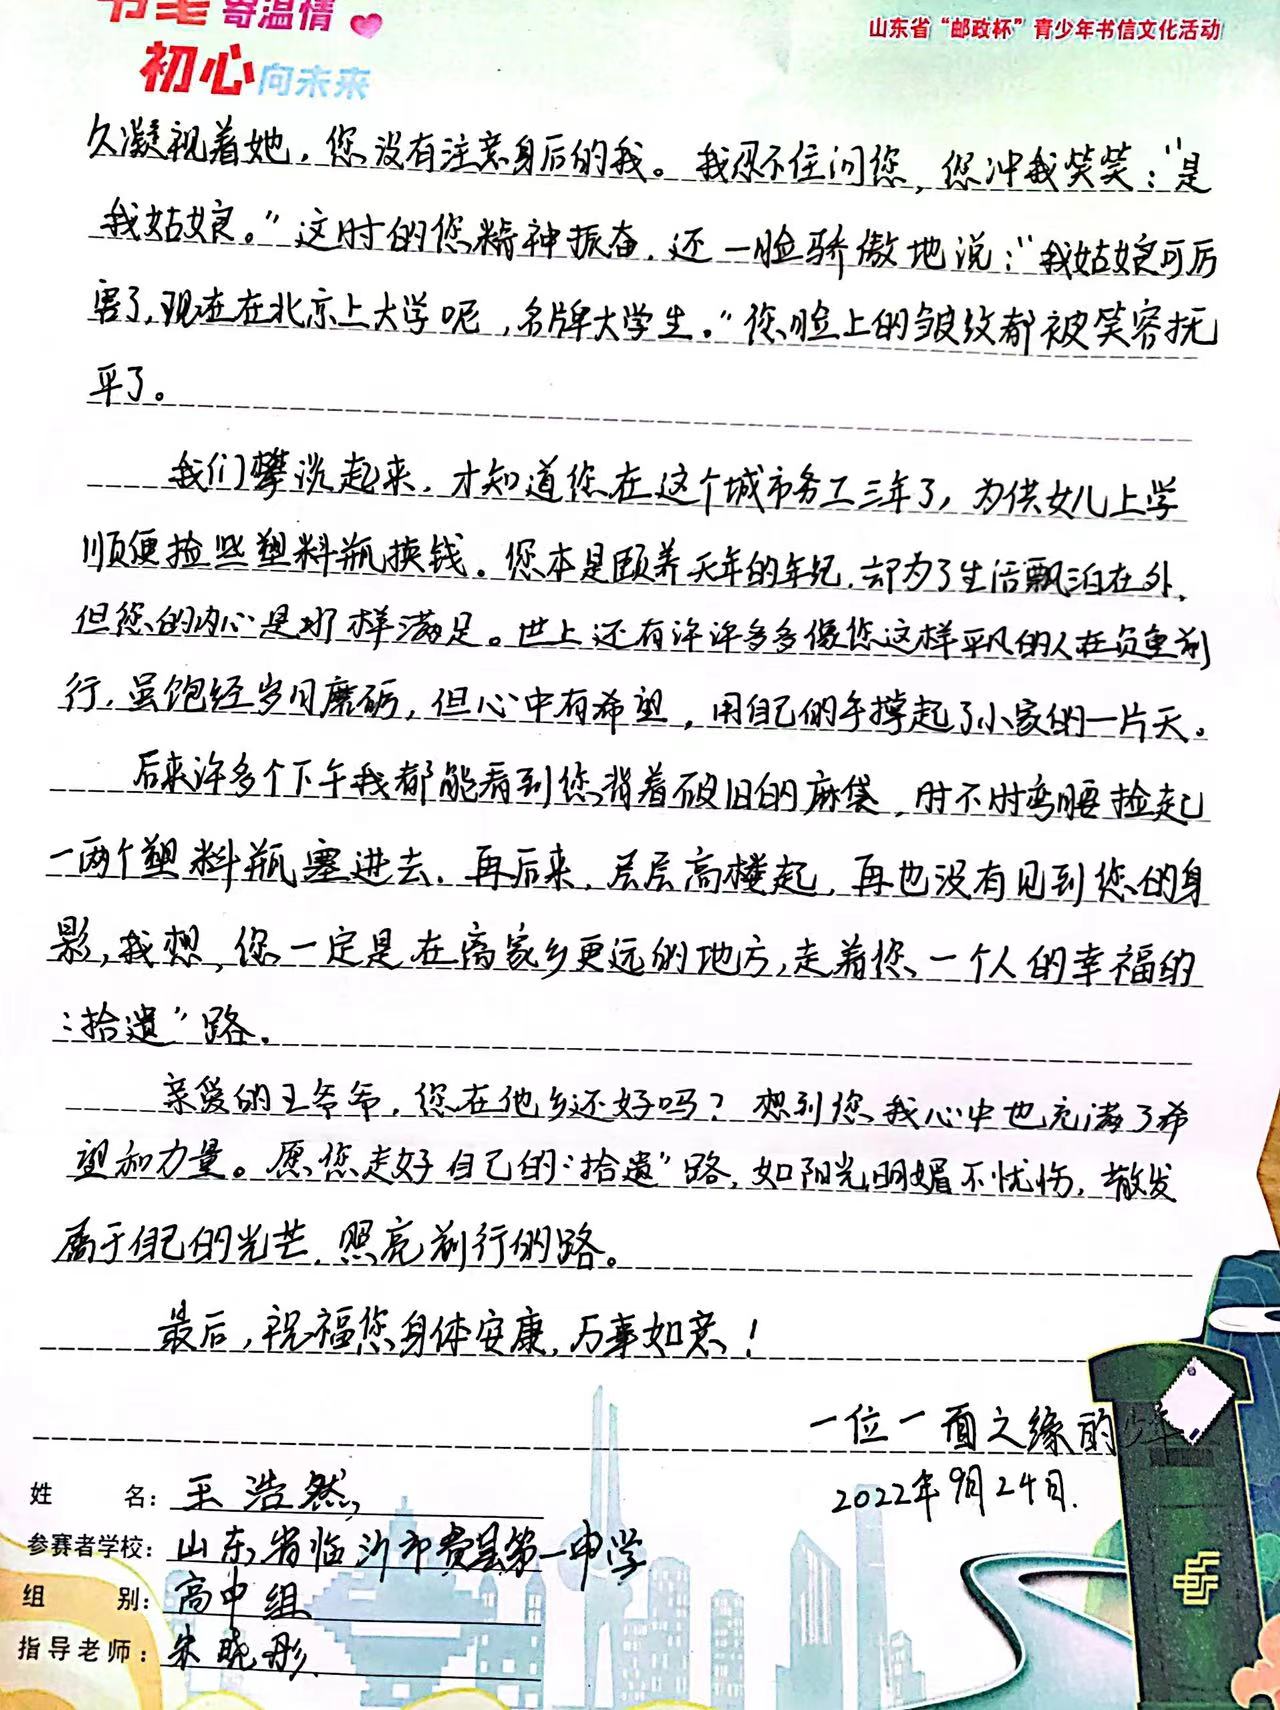 书笔寄温情
山东省“邮政杯”青少年书信文化活动
初心向未来
久凝视着她，您没有注意身后的我。我忍不住问您，您冲我笑笑：“是
我姑娘。”这时的您精神振奋，还一脸骄傲地说：“我姑娘可厉
害了，现在在北京上大学呢，名牌大学生。”您脸上的皱纹都被笑容抚
平了。
我们攀谈起来，才知道您在这个城市务工三年了，为供女儿上学
顺便捡些塑料瓶换钱。您本是颐养天年的年纪，却为了生活飘泊在外，
但您的内心是那样满足。世上还有许许多多像您这样平凡的人在负重前
行，虽饱经岁月磨砺，但心中有希望，用自己的手撑起了小家的一片天。
后来许多个下午我都能看到您背着破旧的麻袋，时不时弯腰捡起
一两个塑料瓶塞进去，再后来，层层高楼起，再也没有见到您的身
影，我想，您一定是在离家乡更远的地方，走着您一个人的幸福的
“拾遗”路。
亲爱的王爷爷，您在他乡还好吗？想到您，我心中也充满了希
望和力量。愿您走好自己的“拾遗”路，如阳光明媚不忧伤，散发
属于自己的光芒，照亮前行的路。
最后，祝福您身体安康，万事如意！
一位一面之缘的少年
2022年9月24日.
姓 名：王浩然
参赛者学校：山东省临沂市费县第一中学
组 别：高中组
指导老师：朱晓彤